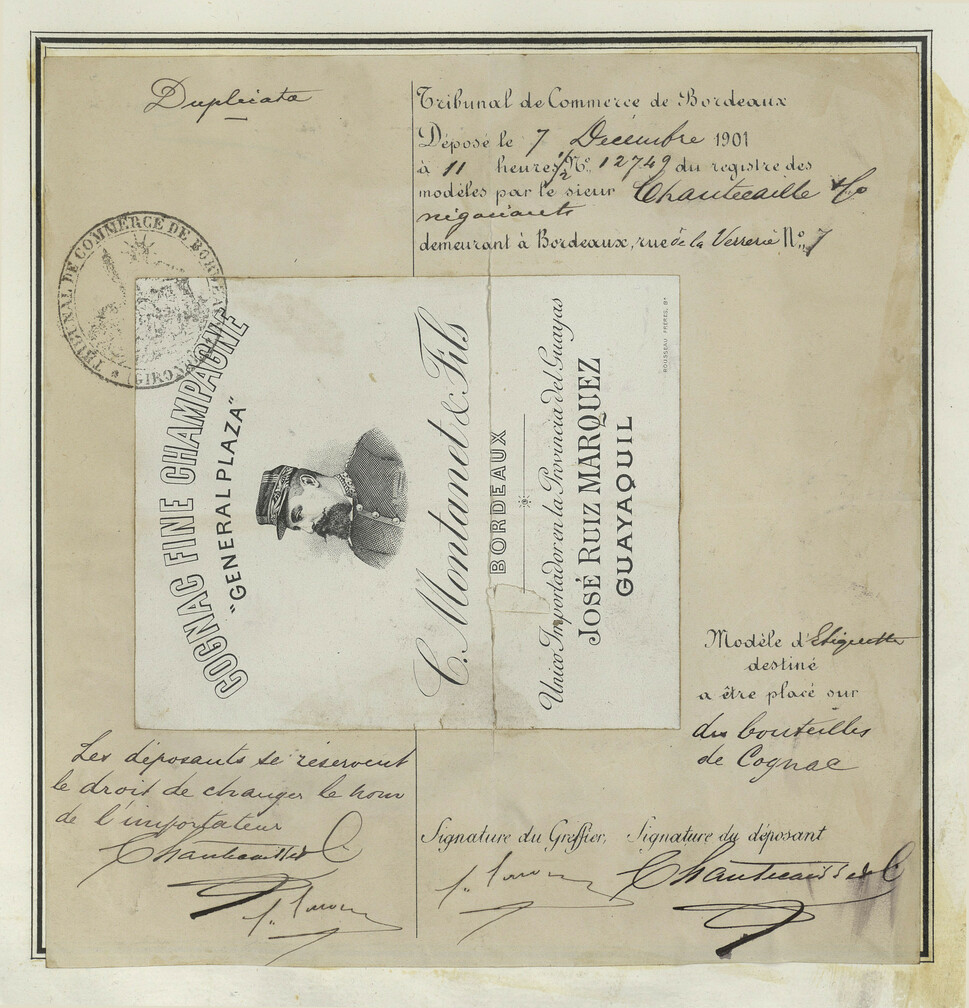 Duplicata
Tribunal de Commerce de Bordeaux
Déposé le 7 Décembre 1901
à 11 heures 1/2 No. 12749 du registre des
modèles par le sieur Chantecaille & Co
négociants
demeurant à Bordeaux, rue de la Verrerie No. 7
TRIBUNAL DE COMMERCE DE BORDEAUX
(GIRONDE)
COGNAC FINE CHAMPAGNE
"GENERAL PLAZA"
C. Montanet & Fils
BORDEAUX
Unico Importador en la Provincia del Guayas
JOSÉ RUIZ MARQUEZ
GUAYAQUIL
ROUSSEAU FRÈRES, Bx
Modèle d'Etiquette
destiné
a être placé sur
des bouteilles
de Cognac
Les déposants se réservent
le droit de changer le nom
de l'importateur
Chantecaille & C
Signature du Greffier, Signature du déposant
Chantecaille & C